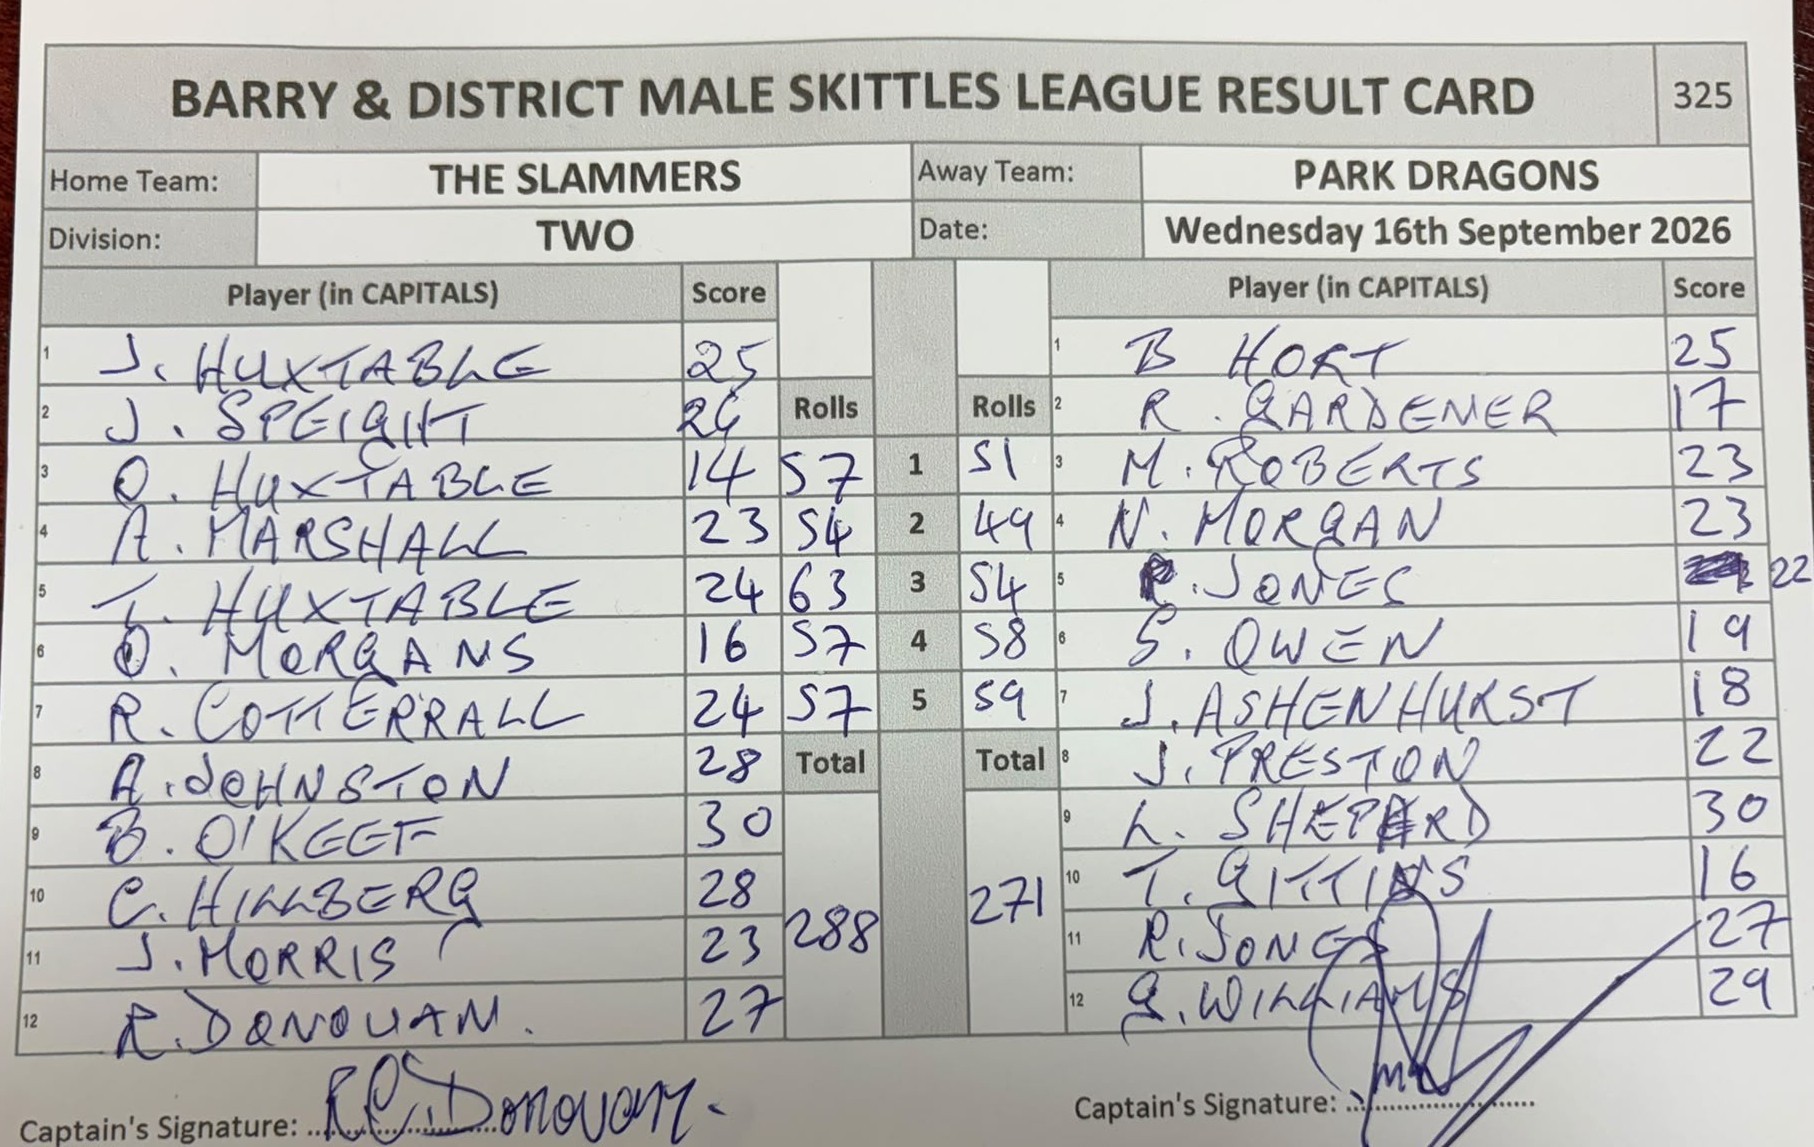 BARRY & DISTRICT MALE SKITTLES LEAGUE RESULT CARD 325
Home Team: THE SLAMMERS Away Team: PARK DRAGONS
Division: TWO Date: Wednesday 16th September 2026
Player (in CAPITALS) Score Player (in CAPITALS) Score
1 J. HUXTABLE 25 1 B HORT 25
2 J. SPEIGHT 26 Rolls Rolls 2 R. GARDENER 17
3 O. HUXTABLE 14 57 1 51 3 M. ROBERTS 23
4 A. MARSHALL 23 54 2 49 4 N. MORGAN 23
5 T. HUXTABLE 24 63 3 54 5 R. JONES 22
6 O. MORGANS 16 57 4 58 6 S. OWEN 19
7 R. COTTERRALL 24 57 5 59 7 J. ASHENHURST 18
8 A. JOHNSTON 28 Total Total 8 J. PRESTON 22
9 B. O'KEEF 30 9 L. 30
10 C. HILLBERG 28 288 271 10 T. GITTINS 16
11 J. MORRIS 23 11 R. JONES 27
12 R. DONOVAN. 27 12 G. WILLIAMS 29
Captain's Signature: R Donovan. Captain's Signature: